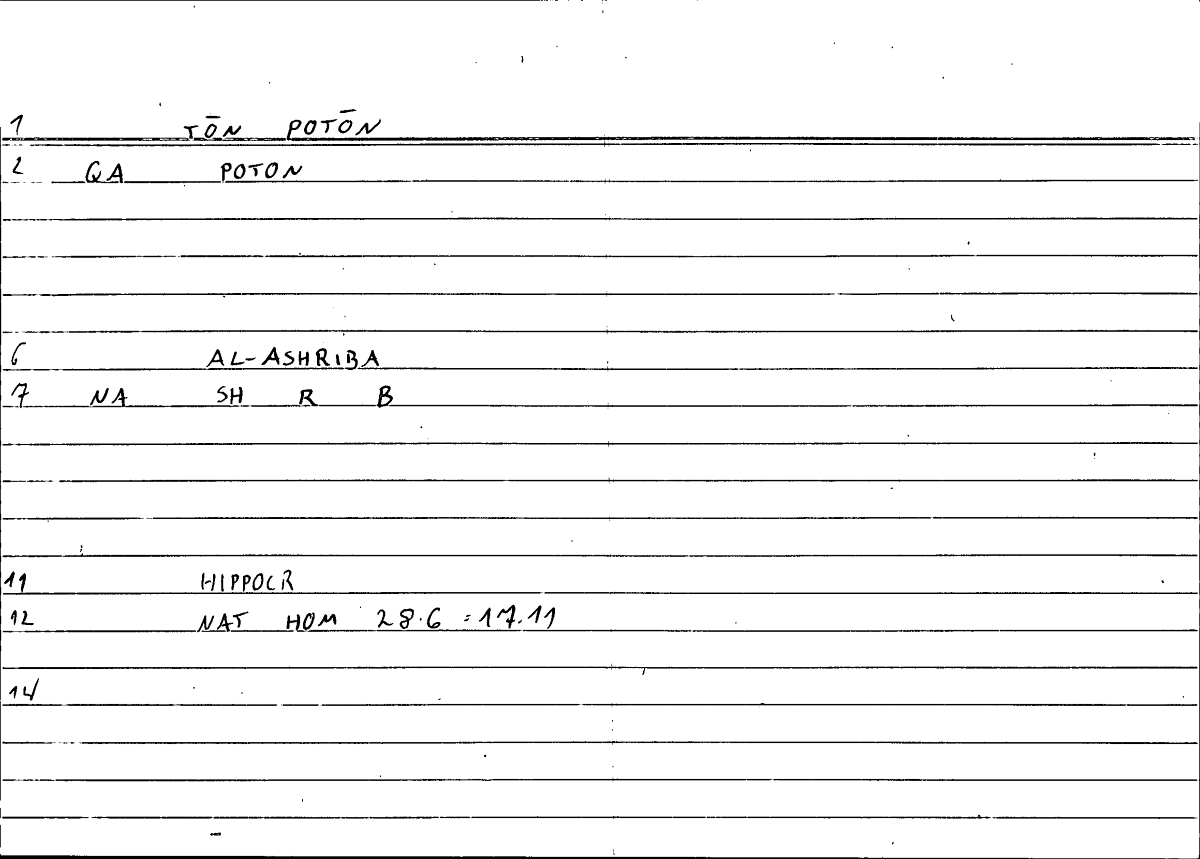 1 TŌN POTŌN
2 QA POTON
6 AL-ASHRIBA
7 NA SH R B
11 HIPPOCR
12 NAT HOM 28.6 = 17.11
14